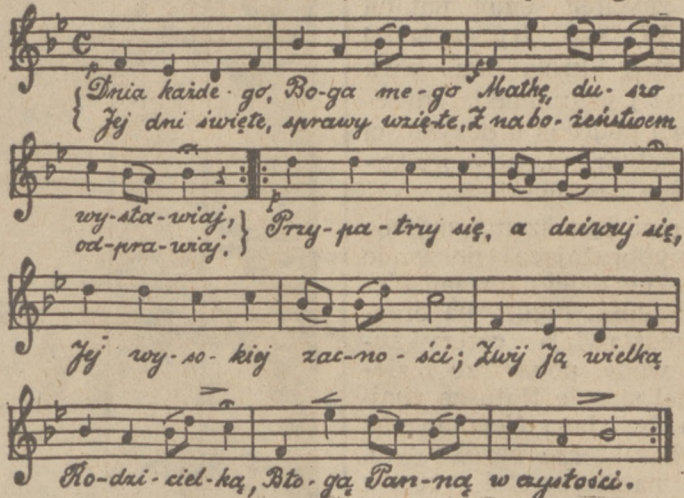 Dnia każde-go, Bo-ga me-go Matkę, du-szo
Jej dni święte, sprawy wzię-te, Z nabo-żeństwem
wy-sła-wiaj, Przy-pa-trzy się, a dziwuj się,
od-pra-wiaj.
Jej wy-so-kiej zac-no-ści; Zwij Ją wielką
Ro-dzi-ciel-ką, Bło-gą Pan-ną w czystości.